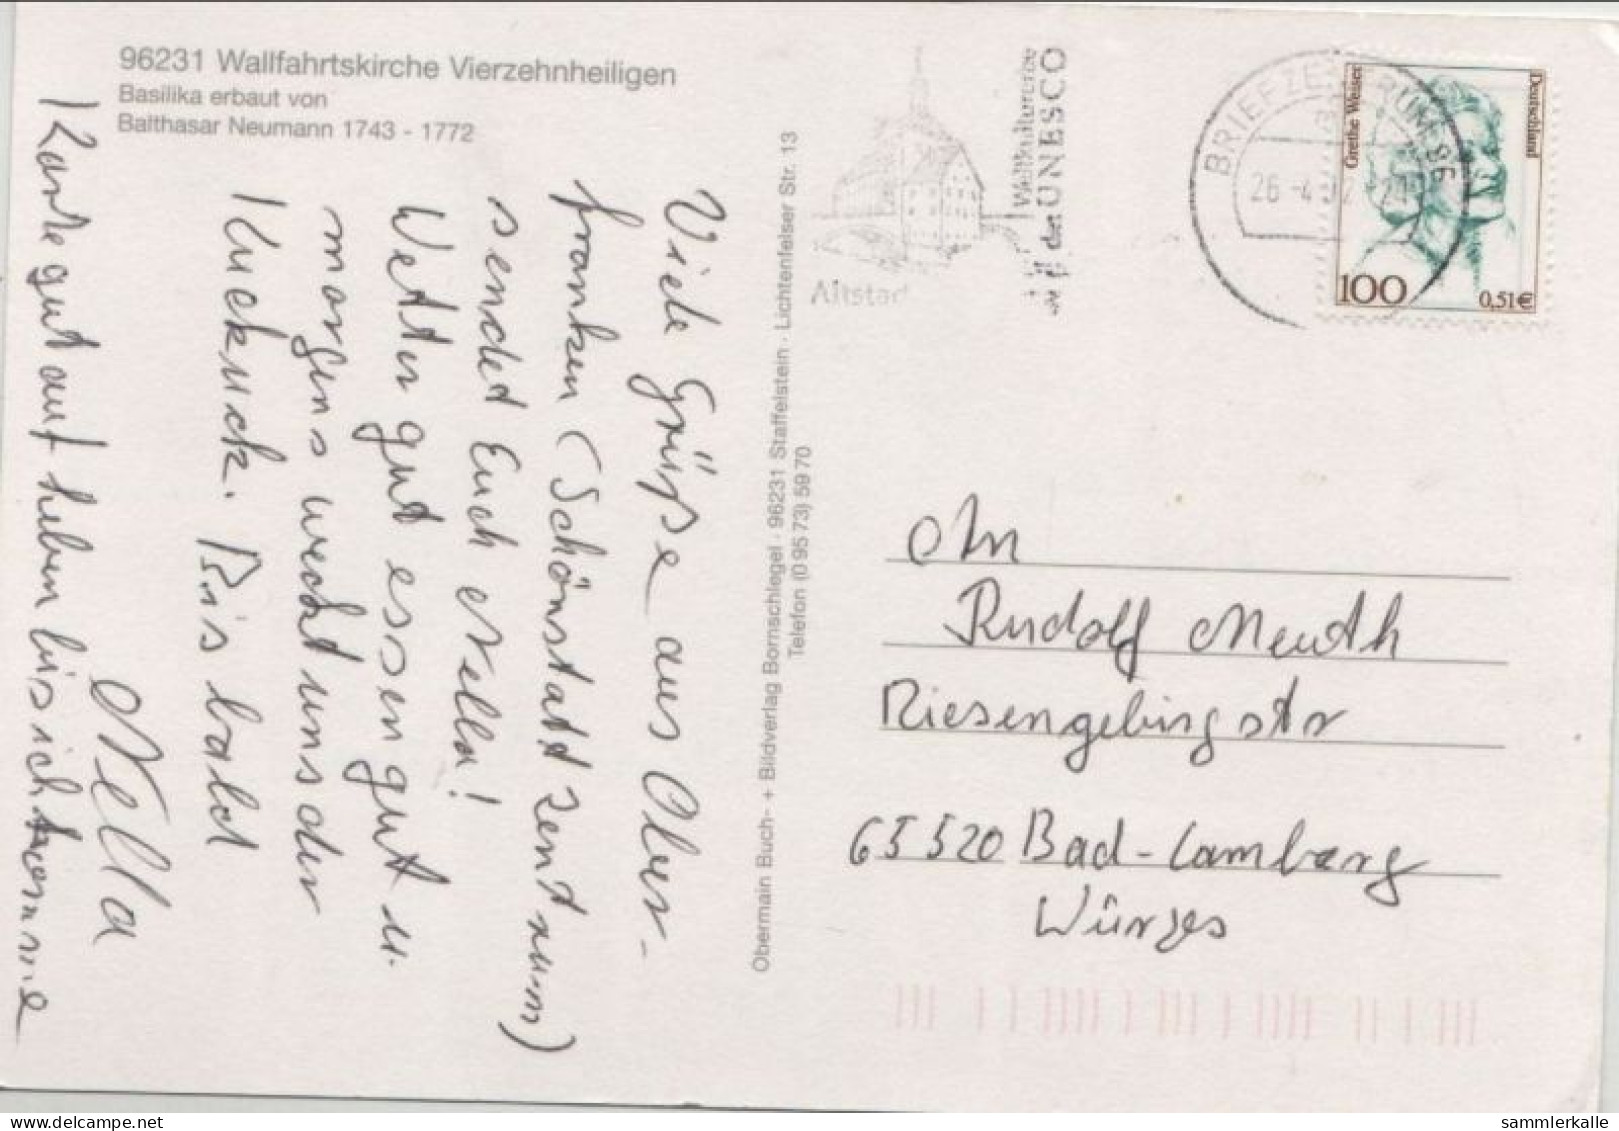 96231 Wallfahrtskirche Vierzehnheiligen
Basilika erbaut von
Balthasar Neumann 1743 - 1772
Viele Grüsse aus Ober-
franken (Schönstattzentrum)
sendet Euch Nella!
Wetter gut essen gut u.
morgens weckt uns der
Kuckuck. Bis bald
Nella
Karte gut aufheben bis ich komme
Obermain Buch- + Bildverlag Bornschlegel · 96231 Staffelstein · Lichtenfelser Str. 13
Telefon (0 95 73) 59 70
Altstadt
Weltkulturerbe
der UNESCO
BRIEFZENTRUM 96
26 -4. 02 - 21
Grethe Weiser
Deutschland
100
0,51€
An
Rudolf Meuth
Riesengebirgstr
65520 Bad-Camberg
Würges
sammlerkalle